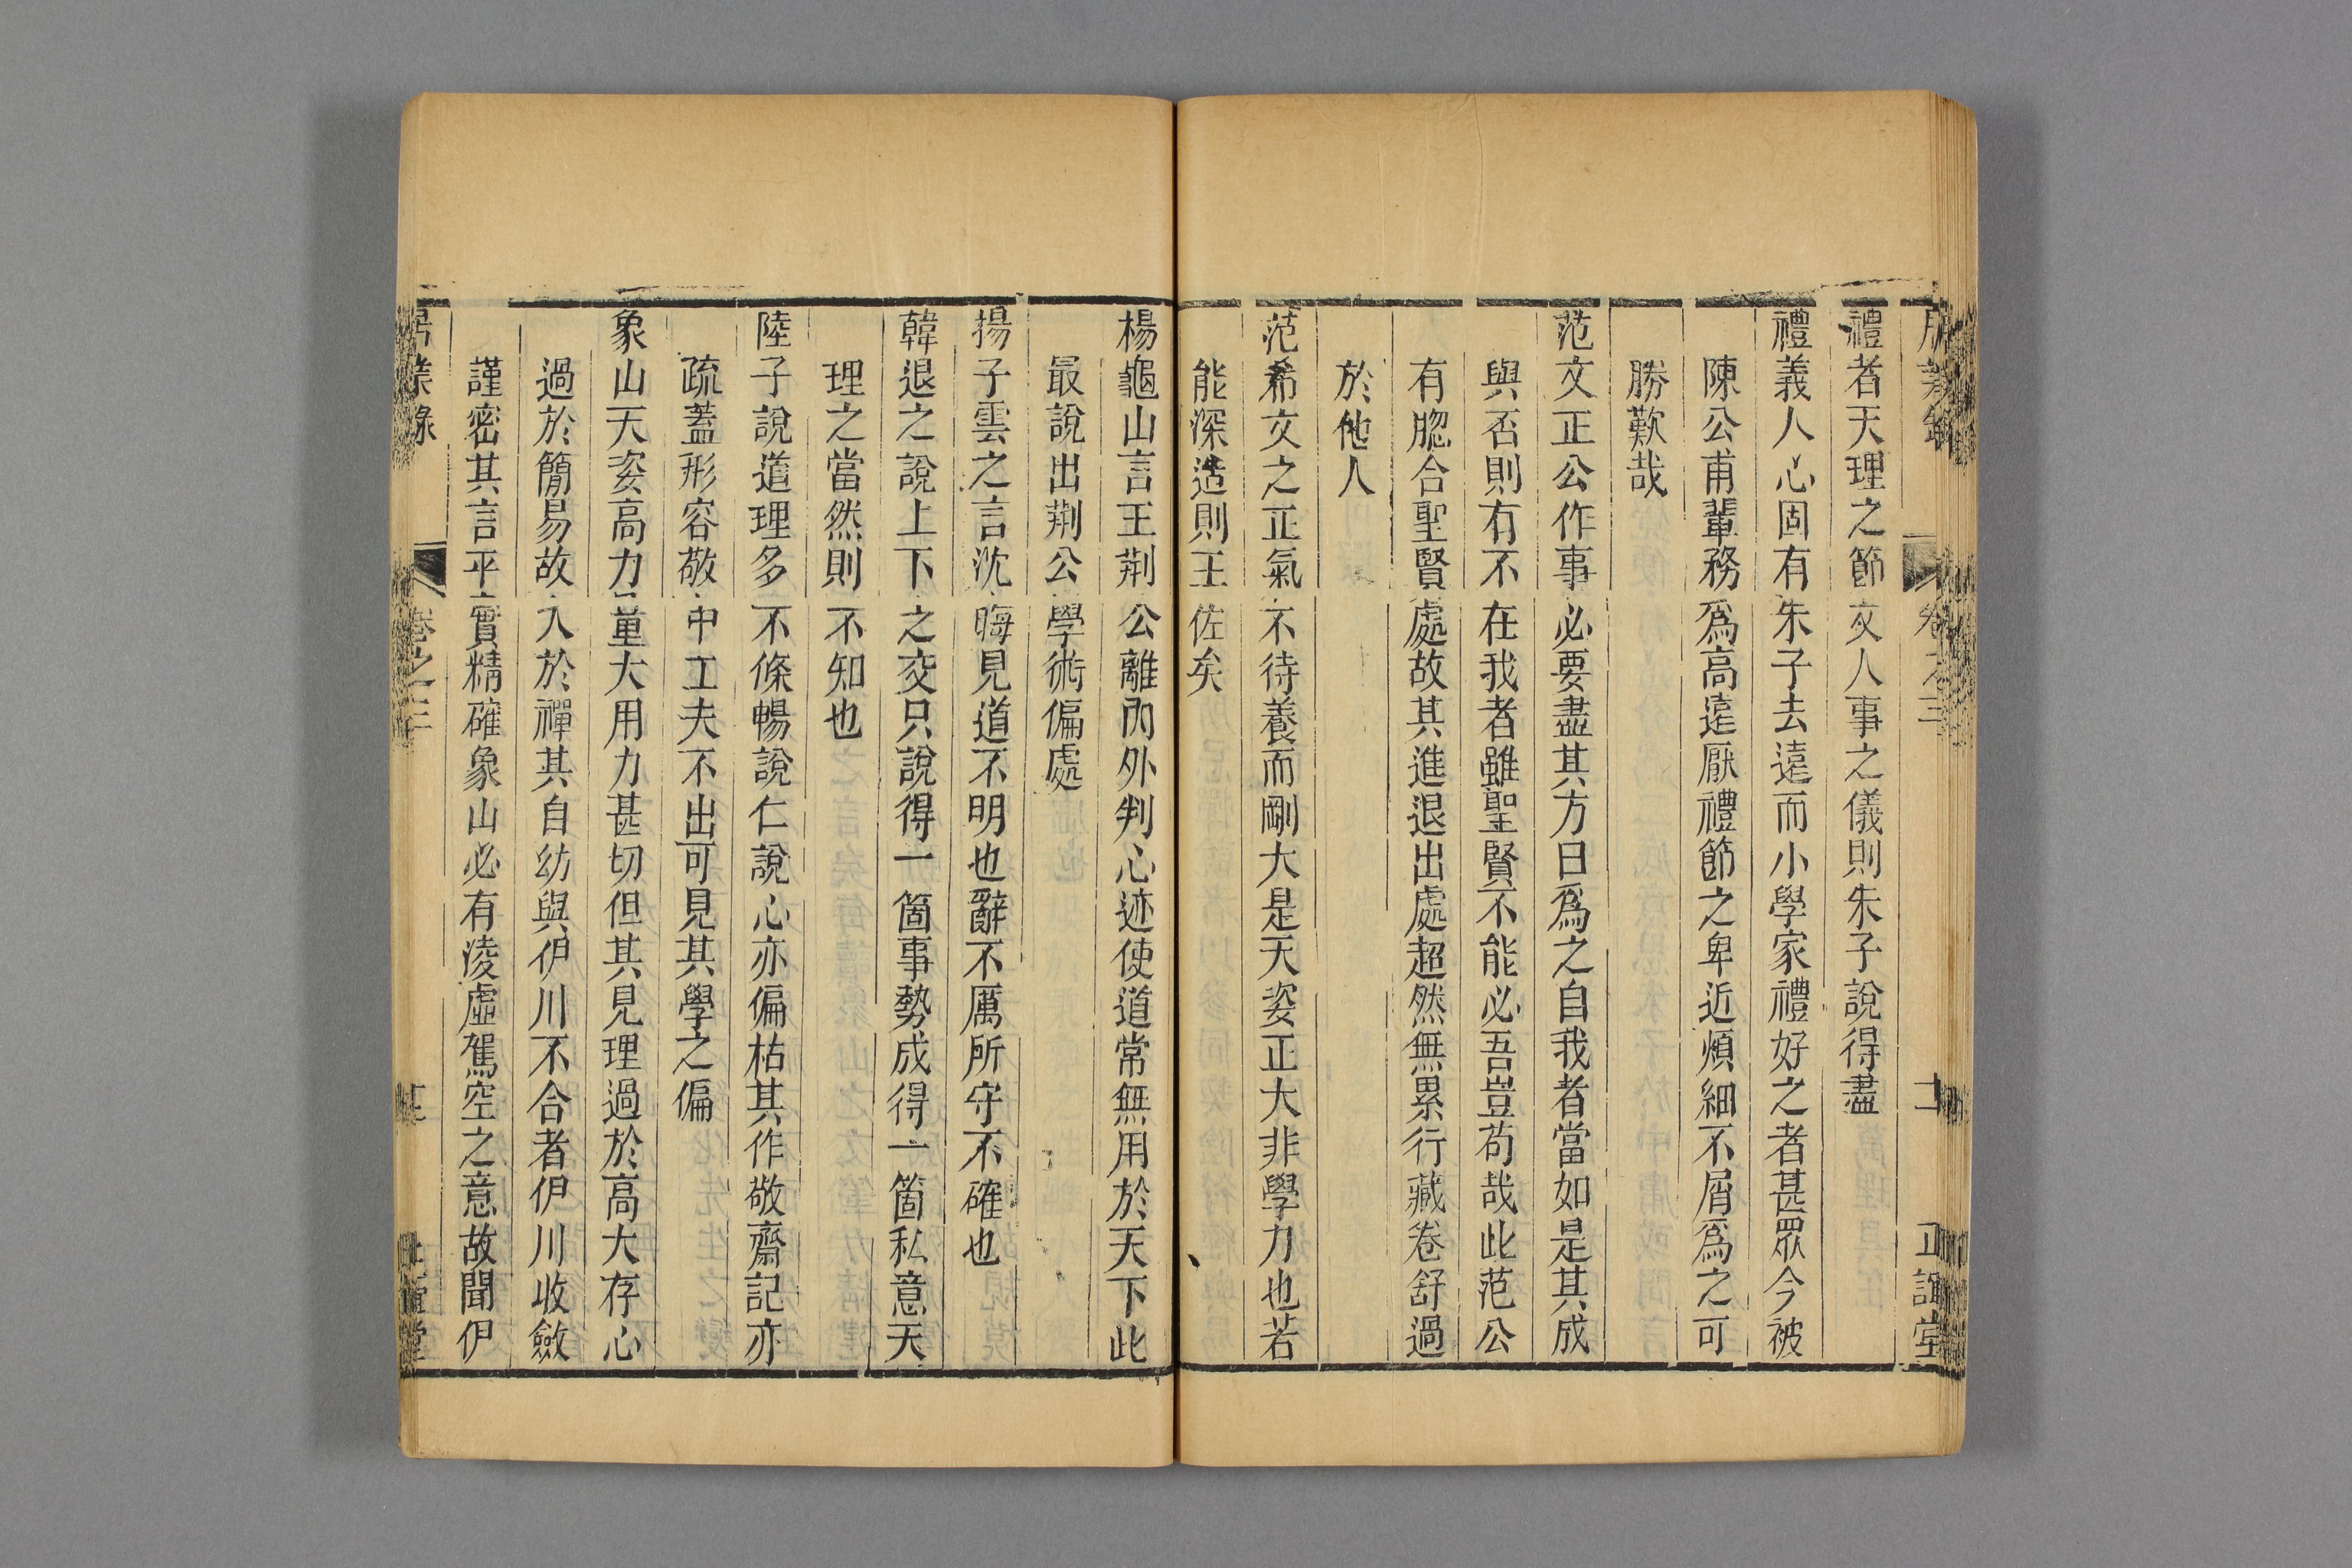 居業錄 卷之三 十一 正誼堂
禮者天理之節文人事之儀則朱子說得盡
禮義人心固有朱子去遠而小學家禮好之者甚眾今被
陳公甫輩務爲高遠厭禮節之卑近煩細不屑爲之可
勝歎哉
范文正公作事必要盡其方曰爲之自我者當如是其成
與否則有不在我者雖聖賢不能必吾豈苟哉此范公
有脗合聖賢處故其進退出處超然無累行藏卷舒過
於他人
范希文之正氣不待養而剛大是天姿正大非學力也若
能深造則王佐矣
楊龜山言王荆公離內外判心迹使道常無用於天下此
最說出荆公學術偏處
揚子雲之言沈晦見道不明也辭不厲所守不確也
韓退之說上下之交只說得一箇事勢成得一箇私意天
理之當然則不知也
陸子說道理多不條暢說仁說心亦偏枯其作敬齋記亦
疏蓋形容敬中工夫不出可見其學之偏
象山天姿高力量大用力甚切但其見理過於高大存心
過於簡易故入於禪其自幼與伊川不合者伊川收斂
謹密其言平實精確象山必有淩虛駕空之意故聞伊
居業錄 卷之三 正誼堂